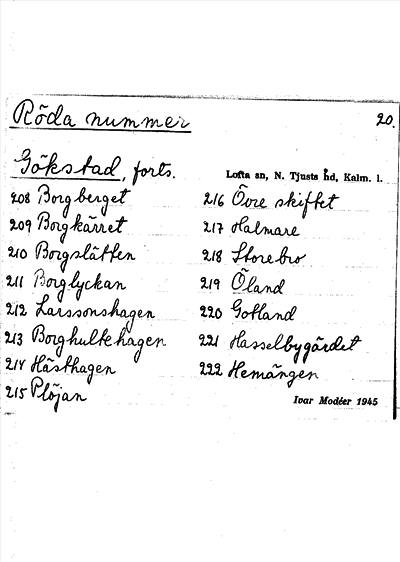 Röda nummer 20.
Gökstad, forts.
Lofta sn, N. Tjusts hd, Kalm. l.
208 Borgberget
209 Borgkärret
210 Borgslätten
211 Borglyckan
212 Larssonshagen
213 Borghultehagen
214 Hästhagen
215 Plöjan
216 Övre skiftet
217 Halmare
218 Storebro
219 Öland
220 Gotland
221 Hasselbygärdet
222 Hemängen
Ivar Modéer 1945